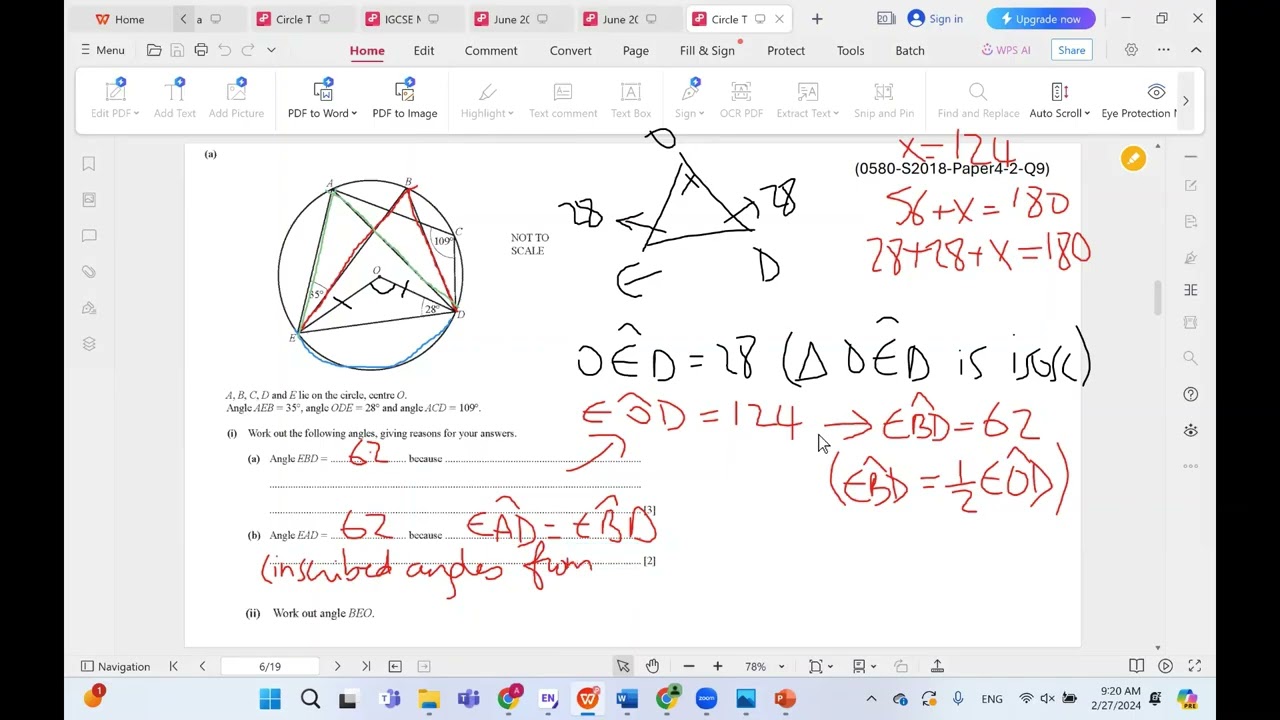 Home
a
Circle T
IGCSE M
June 20
June 20
Circle T
Sign in
Upgrade now
Menu
Home Edit Comment Convert Page Fill & Sign Protect Tools Batch
WPS AI
Share
Edit PDF Add Text Add Picture PDF to Word PDF to Image Highlight Text comment Text Box Sign OCR PDF Extract Text Snip and Pin Find and Replace Auto Scroll Eye Protection
(a)
x = 124
(0580-S2018-Paper4-2-Q9)
56 + x = 180
28 + 28 + x = 180
O
28
28
E
D
A
B
C
109°
O
35°
28°
E
D
NOT TO
SCALE
OÊD = 28 (Δ OÊD is isosc)
EÔD = 124 → EB̂D = 62
(EB̂D = 1/2 EÔD)
A, B, C, D and E lie on the circle, centre O.
Angle AEB = 35°, angle ODE = 28° and angle ACD = 109°.
(i) Work out the following angles, giving reasons for your answers.
(a) Angle EBD = 62 because
[3]
(b) Angle EAD = 62 because EÂD = EB̂D
(inscribed angles from [2]
(ii) Work out angle BEO.
Navigation
6/19
78%
1
EN
zoom
ENG
9:20 AM
2/27/2024